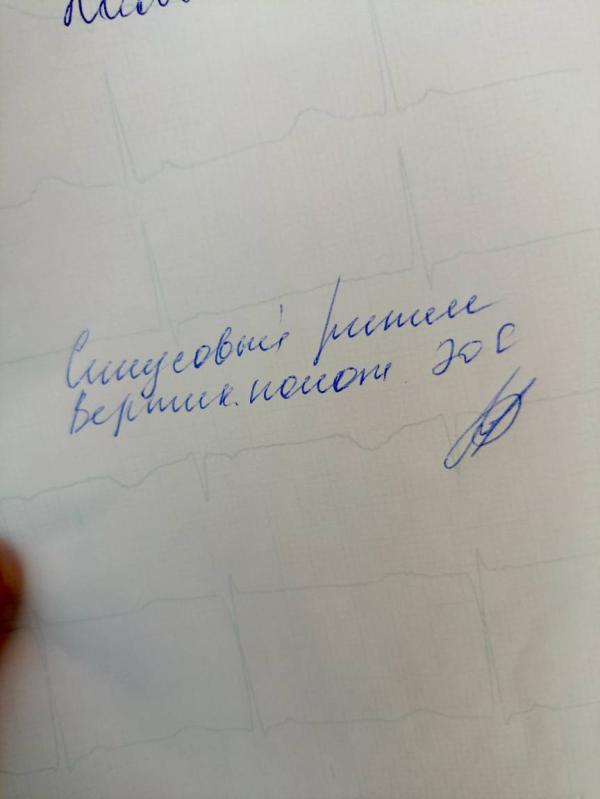 Синусовый ритм
Вертик. полож. ЭОС